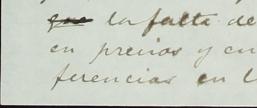 que la falta de
en precios y en
ferencias en l